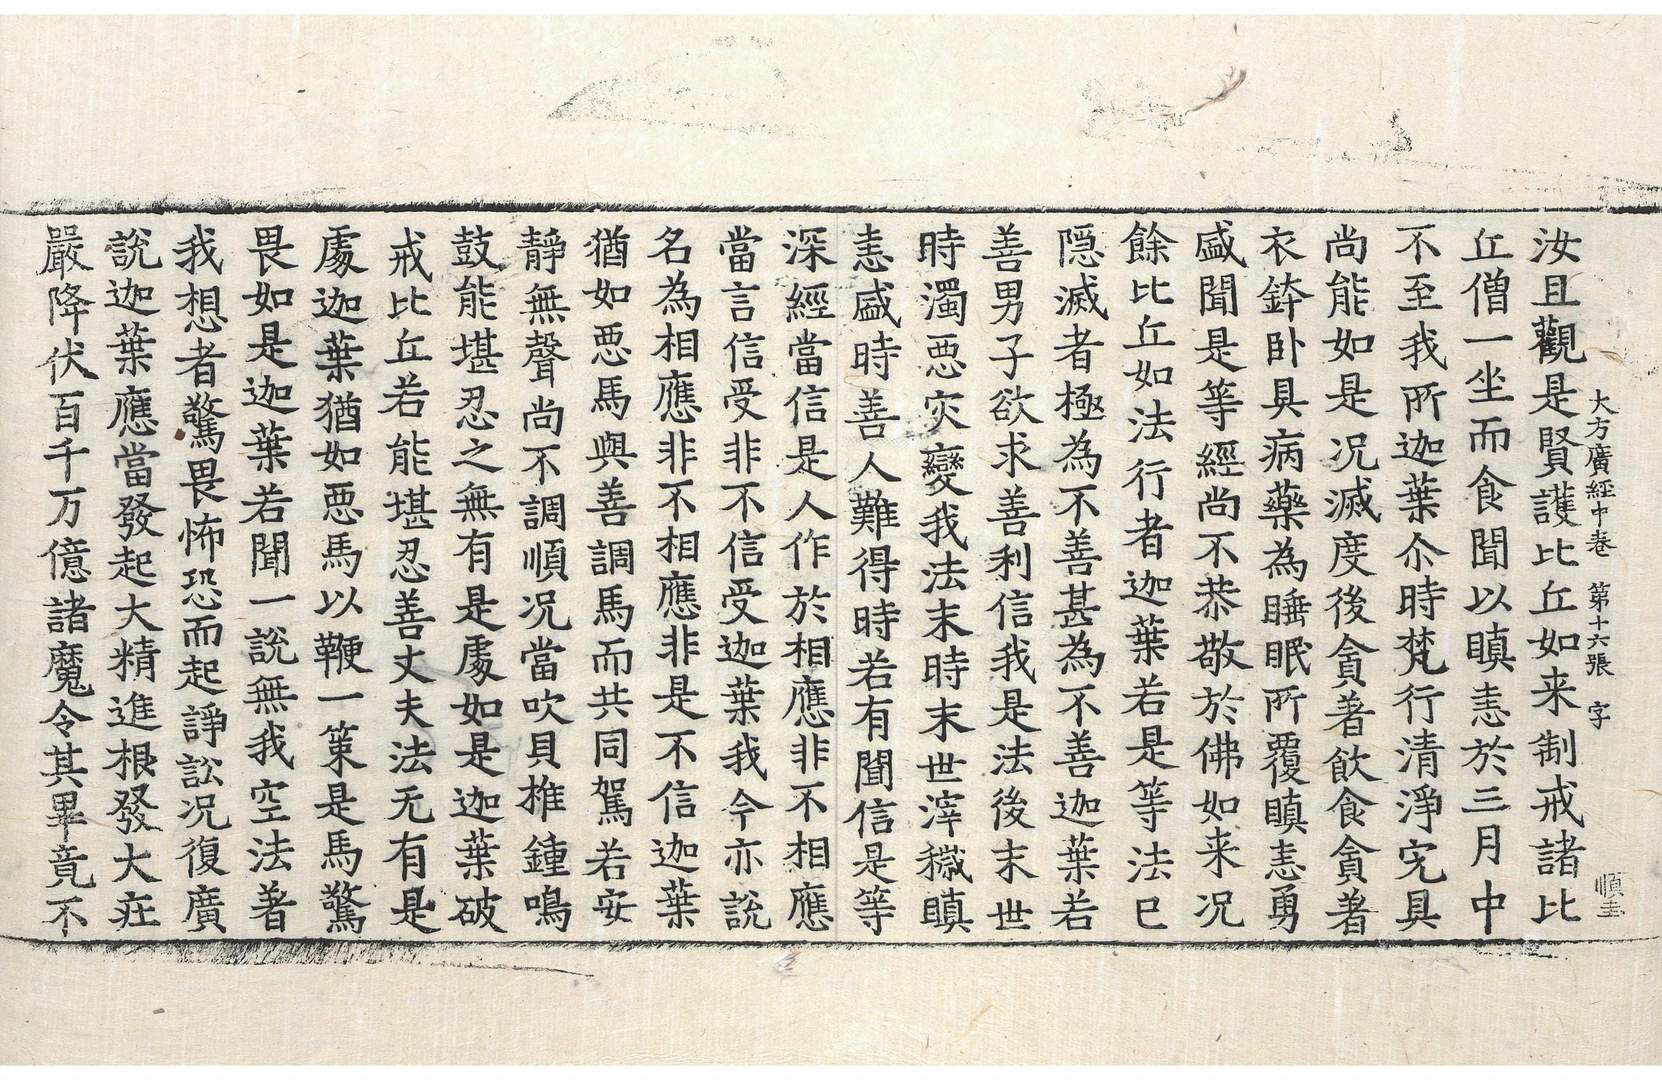 大方廣經中卷 第十六張 字 順圭
汝且觀是賢護比丘如来制戒諸比
丘僧一坐而食聞以瞋恚於三月中
不至我所迦葉尒時梵行清淨究具
尚能如是况滅度後貪著飲食貪著
衣鉢卧具病藥為睡眠所覆瞋恚勇
盛聞是等經尚不恭敬於佛如来况
餘比丘如法行者迦葉若是等法巳
隠滅者極為不善甚為不善迦葉若
善男子欲求善利信我是法後末世
時濁惡灾變我法末時末世滓穢瞋
恚盛時善人難得時若有聞信是等
深經當信是人作於相應非不相應
當言信受非不信受迦葉我今亦說
名為相應非不相應非是不信迦葉
猶如惡馬與善調馬而共同駕若安
静無聲尚不調順况當吹貝推鍾鳴
鼓能堪忍之無有是處如是迦葉破
戒比丘若能堪忍善丈夫法无有是
處迦葉猶如惡馬以鞭一策是馬驚
畏如是迦葉若聞一說無我空法著
我想者驚畏怖恐而起諍訟况復廣
說迦葉應當發起大精進根發大庄
嚴降伏百千万億諸魔令其畢竟不